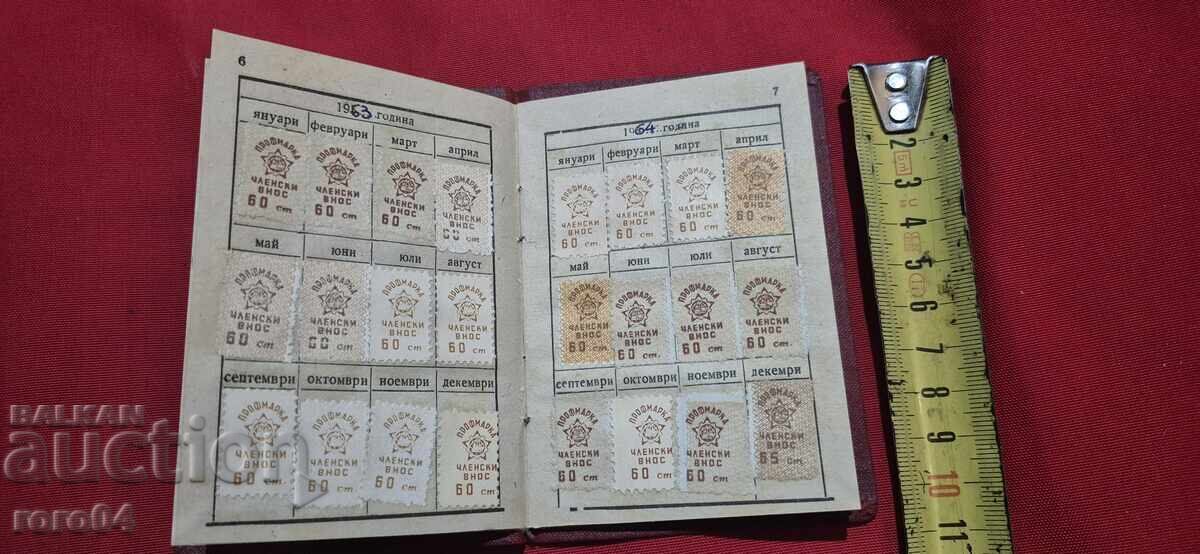 6
1963 година
януари февруари март април
ПРОФМАРКА ПРОФМАРКА ПРОФМАРКА ПРОФМАРКА
ЧЛЕНСКИ ВНОС ЧЛЕНСКИ ВНОС ЧЛЕНСКИ ВНОС ЧЛЕНСКИ ВНОС
60 ст 60 ст 60 ст 60 ст
май юни юли август
ПРОФМАРКА ПРОФМАРКА ПРОФМАРКА ПРОФМАРКА
ЧЛЕНСКИ ВНОС ЧЛЕНСКИ ВНОС ЧЛЕНСКИ ВНОС ЧЛЕНСКИ ВНОС
60 ст 60 ст 60 ст 60 ст
септември октомври ноември декември
ПРОФМАРКА ПРОФМАРКА ПРОФМАРКА ПРОФМАРКА
ЧЛЕНСКИ ВНОС ЧЛЕНСКИ ВНОС ЧЛЕНСКИ ВНОС ЧЛЕНСКИ ВНОС
60 ст 60 ст 60 ст 60 ст
7
1964 година
януари февруари март април
ПРОФМАРКА ПРОФМАРКА ПРОФМАРКА ПРОФМАРКА
ЧЛЕНСКИ ВНОС ЧЛЕНСКИ ВНОС ЧЛЕНСКИ ВНОС ЧЛЕНСКИ ВНОС
60 ст 60 ст 60 ст 60 ст
май юни юли август
ПРОФМАРКА ПРОФМАРКА ПРОФМАРКА ПРОФМАРКА
ЧЛЕНСКИ ВНОС ЧЛЕНСКИ ВНОС ЧЛЕНСКИ ВНОС ЧЛЕНСКИ ВНОС
60 ст 60 ст. 60 ст. 60 ст.
септември октомври ноември декември
ПРОФМАРКА ПРОФМАРКА ПРОФМАРКА ПРОФМАРКА
ЧЛЕНСКИ ВНОС ЧЛЕНСКИ ВНОС ЧЛЕНСКИ ВНОС ЧЛЕНСКИ ВНОС
60 ст. 60 ст 60 ст. 65 ст.
2
3
4
5
6
7
8
9
10
11
5m
BALKAN
auction
roro64